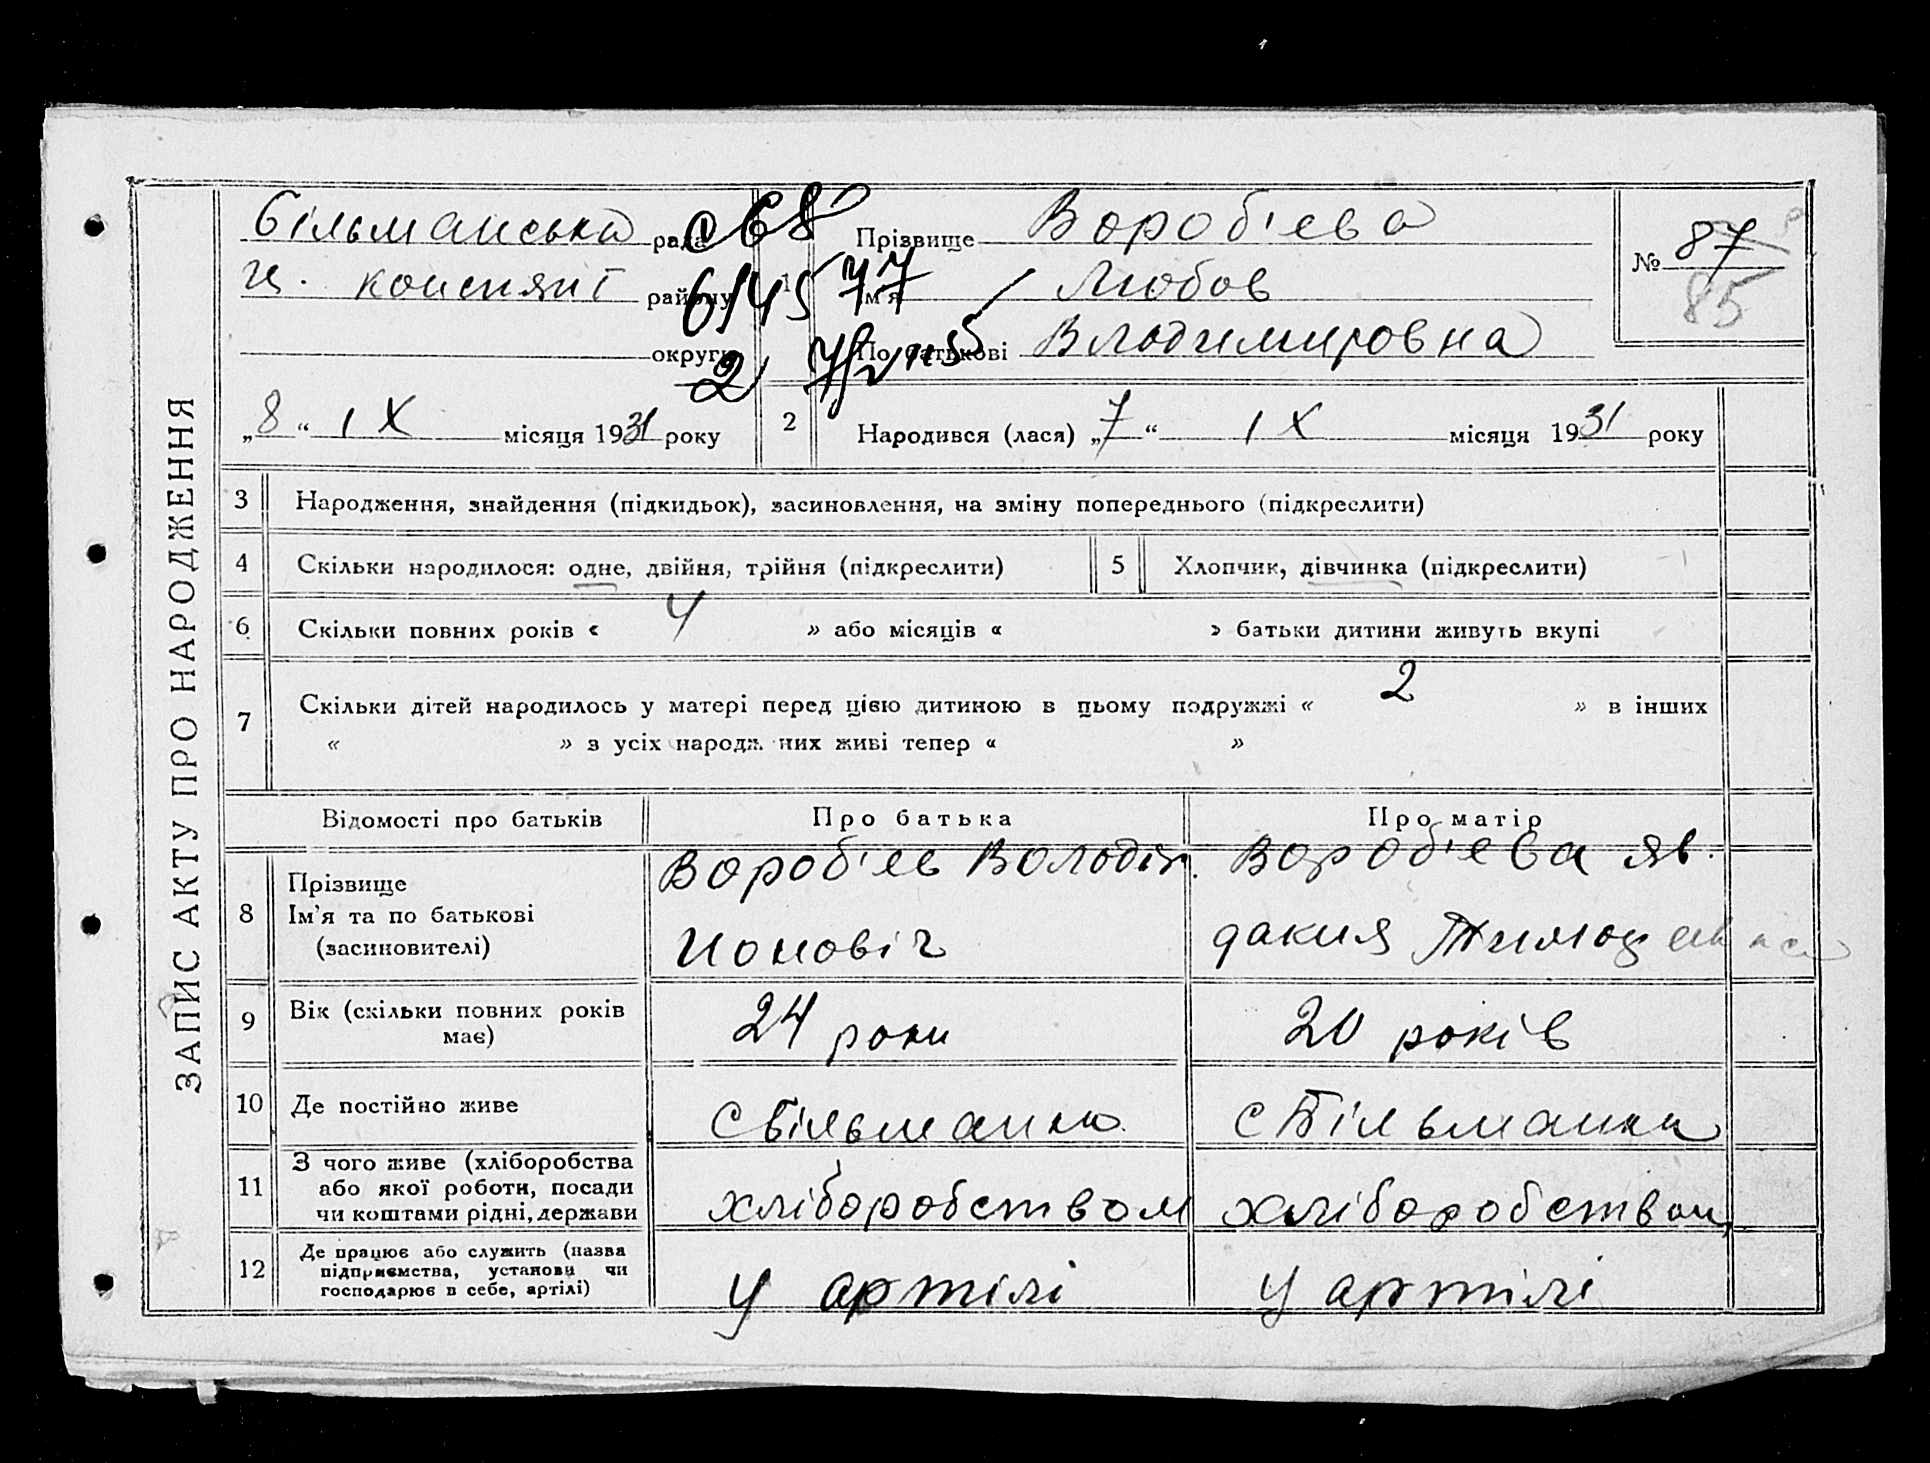 ЗАПИС АКТУ ПРО НАРОДЖЕННЯ
Більманська рада
район
округи
„8“ IX місяця 1931 року
1
Прізвище Вороб'єва
Ім'я Любов
По батькові Влодимировна
№ 87
85
2 Народився (лася) „7“ IX місяця 1931 року
3 Народження, знайдення (підкидьок), засиновлення, на зміну попереднього (підкреслити)
4 Скільки народилося: одне, двійня, трійня (підкреслити)
5 Хлопчик, дівчинка (підкреслити)
6 Скільки повних років « 4 » або місяців « » батьки дитини живуть вкупі
7 Скільки дітей народилось у матері перед цією дитиною в цьому подружжі « 2 » в інших
« » з усіх народж них живі тепер « »
Відомості про батьків Про батька Про матір
8 Прізвище
Ім'я та по батькові
(засиновителі)
Вороб'єв Володім.
Йоновіч
Вороб'єва Яв
дакия
9 Вік (скільки повних років
має)
24 роки
20 років
10 Де постійно живе
с Більманка
с Більманка
11 З чого живе (хліборобства
або якої роботи, посади
чи коштами рідні, держави
хліборобством
хліборобством
12 Де працює або служить (назва
підприємства, установи чи
господарює в себе, артілі)
у артілі
у артілі